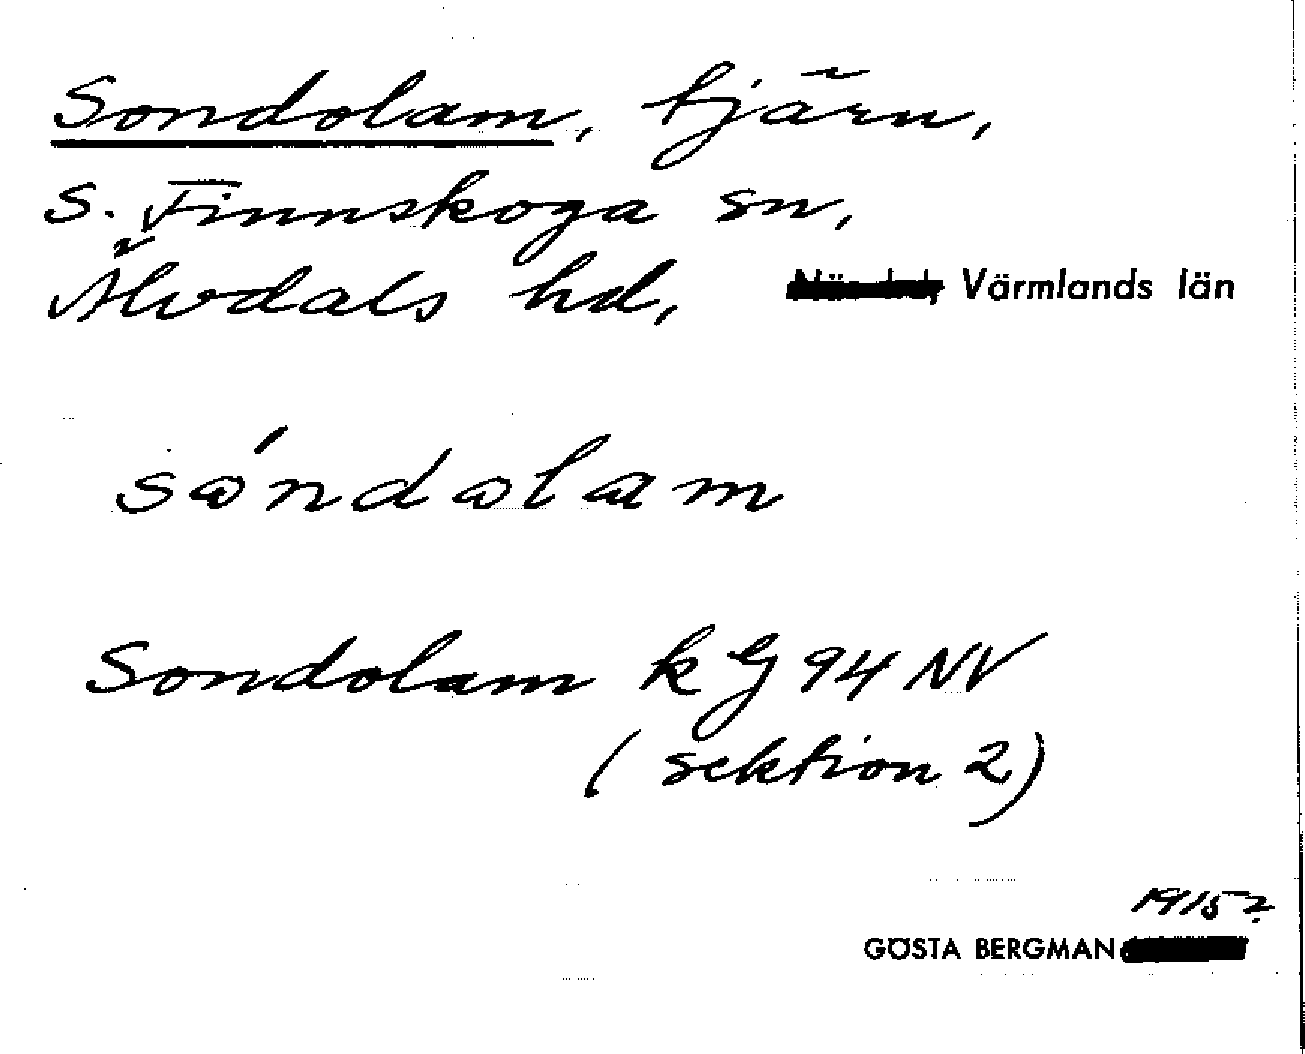 Sondolam, tjärn,
S. Finnskoga sn,
Älvdals hd, Värmlands län
sóndolam
Sondolam kG 94 NV
(sektion 2)
1915?
GÖSTA BERGMAN